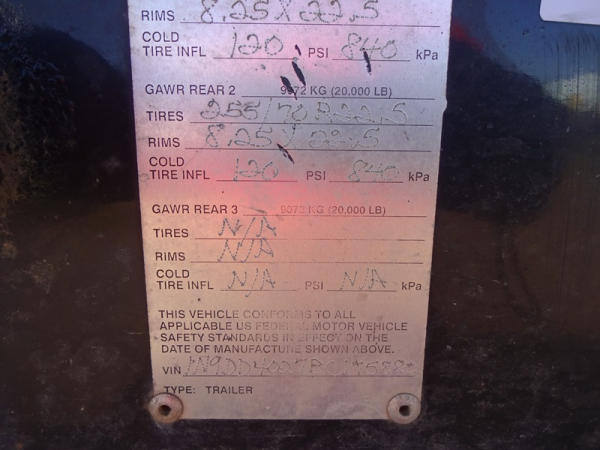 RIMS 8.25 X 22.5
COLD
TIRE INFL 120 PSI 840 kPa
GAWR REAR 2 9072 KG (20,000 LB)
TIRES 255/70 R 22.5
RIMS 8.25 X 22.5
COLD
TIRE INFL 120 PSI 840 kPa
GAWR REAR 3 9072 KG (20,000 LB)
TIRES N/A
RIMS N/A
COLD
TIRE INFL N/A PSI N/A kPa
THIS VEHICLE CONFORMS TO ALL
APPLICABLE US FEDERAL MOTOR VEHICLE
SAFETY STANDARDS IN EFFECT ON THE
DATE OF MANUFACTURE SHOWN ABOVE.
VIN
TYPE: TRAILER